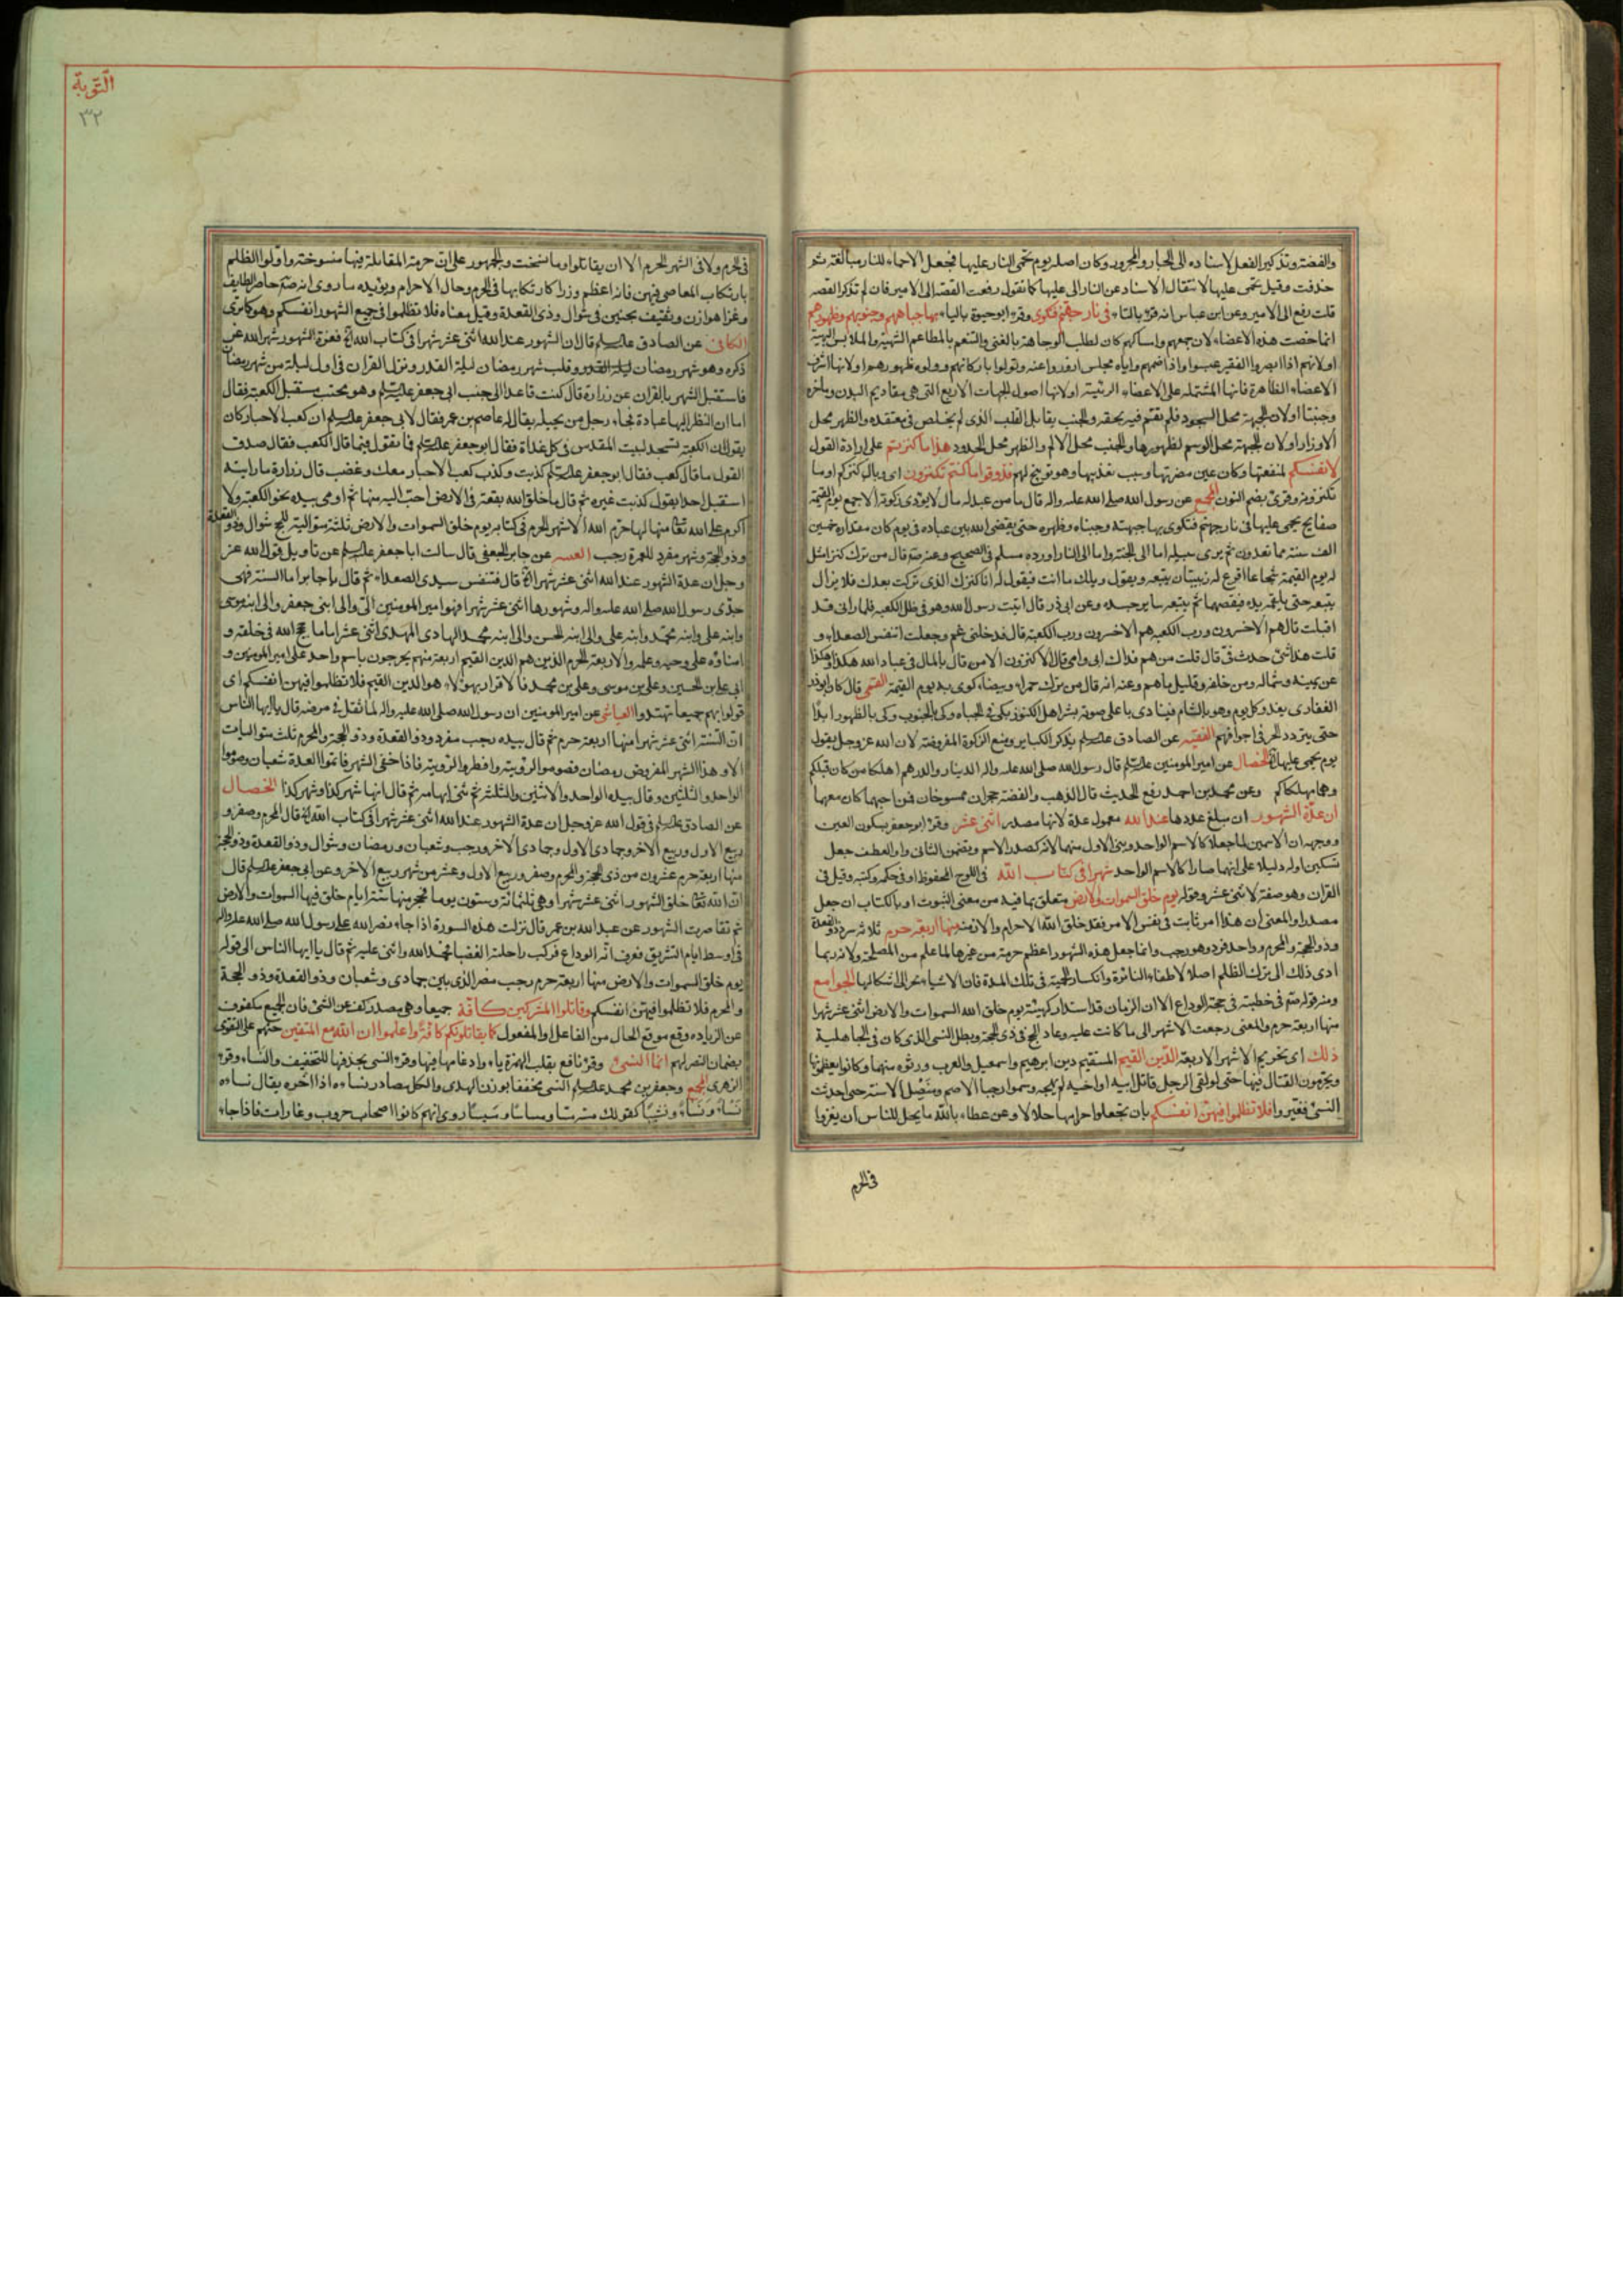 والفضة وتذكير الفعل لاسناده الى الجار والمجرور وكان اصله يوم تحمى النار عليها فجعل الاحماء للنار مبالغة ثم
حذفت وقيل يحمى عليها لانتقال الاسناد عن النار الى عليها كما تقول رفعت القصة الى الامير فان لم تذكر القصة
قلت رفع الى الامير وعن ابن عباس انه قرء بالتاء فى نار جهنم فتكوى وقرء ابوحيوة بالياء بها جباههم وجنوبهم وظهورهم
انما خصت هذه الاعضاء لان جمعهم وامساكهم كان لطلب الوجاهة بالغنى والتنعم بالمطاعم الشهية والملابس البهية
او لانهم اذا ابصروا الفقير عبسوا واذا ضمهم واياه مجلس ازوروا عنه وتولوا باركانهم وولوه ظهورهم او لانها اشرف
الاعضاء الظاهرة فانها المشتملة على الاعضاء الرئيسة او لانها اصول الجهات الاربع التى هى مقاديم البدن ومآخره
وجنبتا او لان الجبهة محل السجود فلم يقم فيه بحقه والجنب يقابل القلب الذى لم يخلص فى معتقده والظهر محل
الاوزار او لان الجبهة محل الوسم لظهورها والجنب محل الالم والظهر محل الحدود هذا ما كنزتم على ارادة القول
لانفسكم لمنفعتها وكان عين مضرتها وسبب تعذيبها وهو توبيخ لهم فذوقوا ما كنتم تكنزون اى وبال كنزكم او ما
تكنزونه وقرئ بضم النون المجمع عن رسول الله صلى الله عليه واله قال ما من عبد له مال لا يؤدى زكوته الا جمع يوم القيمة
صفايح يحمى عليها فى نار جهنم فتكوى بها جبهته وجنباه وظهره حتى يقضى الله بين عباده فى يوم كان مقداره خمسين
الف سنة مما تعدون ثم يرى سبيله اما الى الجنة واما الى النار اورده مسلم فى الصحيح وعنه صم قال من ترك كنزا مثل
له يوم القيمة شجاعا اقرع له زبيبتان يتبعه ويقول ويلك ما انت فيقول انا كنزك الذى تركت بعدك فلا يزال
يتبعه حتى يلقمه يده فيقصمها ثم يتبعه ساير جسده وعن ابى ذر قال اتيت رسول الله وهو فى ظل الكعبة فلما رانى قد
اقبلت قال هم الاخسرون ورب الكعبة هم الاخسرون ورب الكعبة قال فدخلنى غم وجعلت اتنفس الصعداء و
قلت هذا شئ حدث فى قال قلت من هم فداك ابى وامى قال الاكثرون الا من قال بالمال فى عباد الله هكذا وهكذا
عن يمينه وشماله ومن خلفه وقليل ما هم وعنه انه قال من ترك حمراء وبيضاء كوى به يوم القيمة القمى قال كان ابوذر
الغفارى يغدو كل يوم وهو بالشام فينادى باعلى صوته بشر اهل الكنوز بكى فى الجباه وكى بالجنوب وكى بالظهور ابدا
حتى يتردد الحر فى اجوافهم الفقيه عن الصادق علیهالسلم بذكر الكبائر ومنع الزكوة المفروضة لان الله عز وجل يقول
يوم يحمى عليها الخصال عن امير المومنين علیهالسلم قال رسول الله صلى الله عليه واله الدينار والدرهم اهلكا من كان قبلكم
وهما مهلكاكم وعن محمد بن احمد رفع الحديث قال الذهب والفضة حجران ممسوخان فمن احبهما كان معهما
ان عدة الشهور ان مبلغ عددها عند الله معمول عدة لانها مصدر اثنى عشر وقرء ابوجعفر بسكون العين
ووجهه ان الاسمين لما جعلا كالاسم الواحد وبنى الاول منهما لانه كصدر الاسم ويضمن الثانى واو العطف جعل
تسكين اوله دليلا على انهما صارا كالاسم الواحد شهرا فى كتاب الله فى اللوح المحفوظ او فى حكمه وكتبه وقيل فى
القران وهو صفة لاثنى عشر وقوله يوم خلق السموات والارض متعلق بما فيه من معنى الثبوت او بالكتاب ان جعل
مصدرا والمعنى ان هذا امر ثابت فى نفس الامر فقد خلق الله الاجرام والازمنة منها اربعة حرم ثلاثة سرد ذو القعدة
وذو الحجة والمحرم وواحد فرد وهو رجب وانما جعل هذه الشهور اعظم حرمة من غيرها لما علم من المصلحة ولانه ربما
ادى ذلك الى ترك الظلم اصلا لاطفاء النائرة وانكسار الحمية فى تلك المدة فان الاشياء تجر الى اشكالها الجوامع
ومنه قوله صم فى خطبته فى حجة الوداع الا ان الزمان قد استدار كهيئة يوم خلق الله السموات والارض اثنى عشر شهرا
منها اربعة حرم والمعنى رجعت الاشهر الى ما كانت عليه وعاد الحج فى ذى الحجة وبطل النسى الذى كان فى الجاهلية
ذلك اى تحريم الاشهر الاربعة الدين القيم المستقيم دين ابرهيم واسمعيل والعرب ورثوه منهما وكانوا يعظمونها
ويحرمون القتال فيها حتى لو لقى الرجل قاتل ابيه او اخيه لم يهجه وسموا رجبا الاصم ومنصل الاسنة حتى احدثت
النسئ فغيروا فلا تظلموا فيهن انفسكم بان تجعلوا حرامها حلالا وعن عطاء بالله ما يحل للناس ان يغزوا
فى الحرم
التوبة
٣٢
فى الحرم ولا فى الشهر الحرم الا ان يقاتلوا وما نسخت والجمهور على ان حرمة المقاتلة فيها منسوخة واولوا الظلم
بارتكاب المعاصى فيهن فانه اعظم وزرا كارتكابها فى الحرم وحال الاحرام ويؤيده ما روى انه صم حاصر الطايف
وغزا هوازن وثقيف بحنين فى شوال وذى القعدة وقيل معناه فلا تظلموا فى جميع الشهور انفسكم وهو كما ترى
الكافى عن الصادق علیهالسلم قال ان الشهور عند الله اثنى عشر شهرا فى كتاب الله فغرة الشهور شهر الله عز
ذكره وهو شهر رمضان وقلب شهر رمضان ليلة القدر ونزل القران فى اول ليلة من شهر رمضان
فاستقبل الشهر بالقران عن زرارة قال كنت قاعدا الى جنب ابى جعفر علیهالسلم وهو محتب مستقبل الكعبة فقال
اما ان النظر اليها عبادة فجاءه رجل من بجيلة يقال له عاصم بن عمر فقال لابى جعفر علیهالسلم ان كعب الاحبار كان
يقول ان الكعبة تسجد لبيت المقدس فى كل غداة فقال ابوجعفر علیهالسلم فما تقول فيما قال الكعب فقال صدق
القول ما قال كعب فقال ابوجعفر علیهالسلم كذبت وكذب كعب الاحبار معك وغضب قال زرارة ما رايته
استقبل احدا بقول كذبت غيره ثم قال ما خلق الله بقعة فى الارض احب اليه منها ثم اومى بيده نحو الكعبة ولا
اكرم على الله تعالى منها لها حرم الله الاشهر الحرم فى كتابه يوم خلق السموات والارض ثلثة متوالية للحج شوال وذو القعدة
وذو الحجة وشهر مفرد للعمرة رجب عن جابر الجعفى قال سالت ابا جعفر علیهالسلم عن تاويل قول الله عز
وجل ان عدة الشهور عند الله اثنى عشر شهرا قال فتنفس سيدى الصعداء ثم قال يا جابر اما السنة فهى
جدى رسول الله صلى الله عليه واله وشهورها اثنى عشر شهرا فهو امير المومنين الى والى ابنى جعفر والى ابنه موسى
وابنه على وابنه محمد وابنه على والى ابنه الحسن والى ابنه محمد الهادى المهدى اثنى عشر اماما حجج الله فى خلقه و
امناؤه على وحيه وعلمه والاربعة الحرم الذين هم الدين القيم اربعة منهم يخرجون باسم واحد على امير المومنين و
ابى على بن الحسين وعلى بن موسى وعلى بن محمد فالاقرار بهؤلاء هو الدين القيم فلا تظلموا فيهن انفسكم اى
قولوا بهم جميعا تهتدوا العياشى عن امير المومنين ان رسول الله صلى الله عليه واله لما ثقل فى مرضه قال يا ايها الناس
ان السنة اثنى عشر شهرا منها اربعة حرم ثم قال بيده رجب مفرد وذو القعدة وذو الحجة والمحرم ثلث متواليات
الا وهذا الشهر المفروض رمضان فصوموا لرؤيته وافطروا لرؤيته فاذا خفى الشهر فاتموا العدة شعبان وصوموا
الواحد والثلثين وقال بيده الواحد والاثنين والثلثة ثم ثنى ابهامه ثم قال انها شهر كذا وشهر كذا الخصال
عن الصادق علیهالسلم فى قول الله عز وجل ان عدة الشهور عند الله اثنى عشر شهرا فى كتاب الله قال المحرم وصفر و
ربيع الاول وربيع الاخر وجمادى الاول وجمادى الاخر ورجب وشعبان ورمضان وشوال وذو القعدة وذو الحجة
منها اربعة حرم عشرون من ذى الحجة والمحرم وصفر وربيع الاول وعشر من شهر ربيع الاخر وعن ابى جعفر علیهالسلم قال
ان الله تعالى خلق الشهور اثنى عشر شهرا وهى ثلثمائة وستون يوما فحجز منها ستة ايام خلق فيها السموات والارض
ثم تقاصرت الشهور عن عبد الله بن عمر قال نزلت هذه السورة اذا جاء نصر الله على رسول الله صلى الله عليه واله
فى اوسط ايام التشريق فعرف انه الوداع فركب راحلته العضبا فحمد الله واثنى عليه ثم قال يا ايها الناس الى قوله
يوم خلق السموات والارض منها اربعة حرم رجب مضر الذى بين جمادى وشعبان وذو القعدة وذو الحجة
والمحرم فلا تظلموا فيهن انفسكم وقاتلوا المشركين كافة جميعا وهى مصدر كف عن الشئ فان الجميع مكفوف
عن الزيادة وقع موقع الحال من الفاعل او المفعول كما يقاتلونكم كافة واعلموا ان الله مع المتقين حثهم على التقوى
بضمان النصر لهم انما النسئ وقرء نافع بقلب الهمزة ياء وادغامها فيها وقرء النسى بحذفها للتخفيف والنساء وقرء
الزهرى المجمع وجعفر بن محمد علیهالسلم النسى مخففا بوزن الهدى والكل مصادر نساءه اذا اخره يقال نساءه
نسأ ونساء ونسيا كقولك مسه مسا ومساسا ومسيسا روى انهم كانوا اصحاب حروب وغارات فاذا جاء